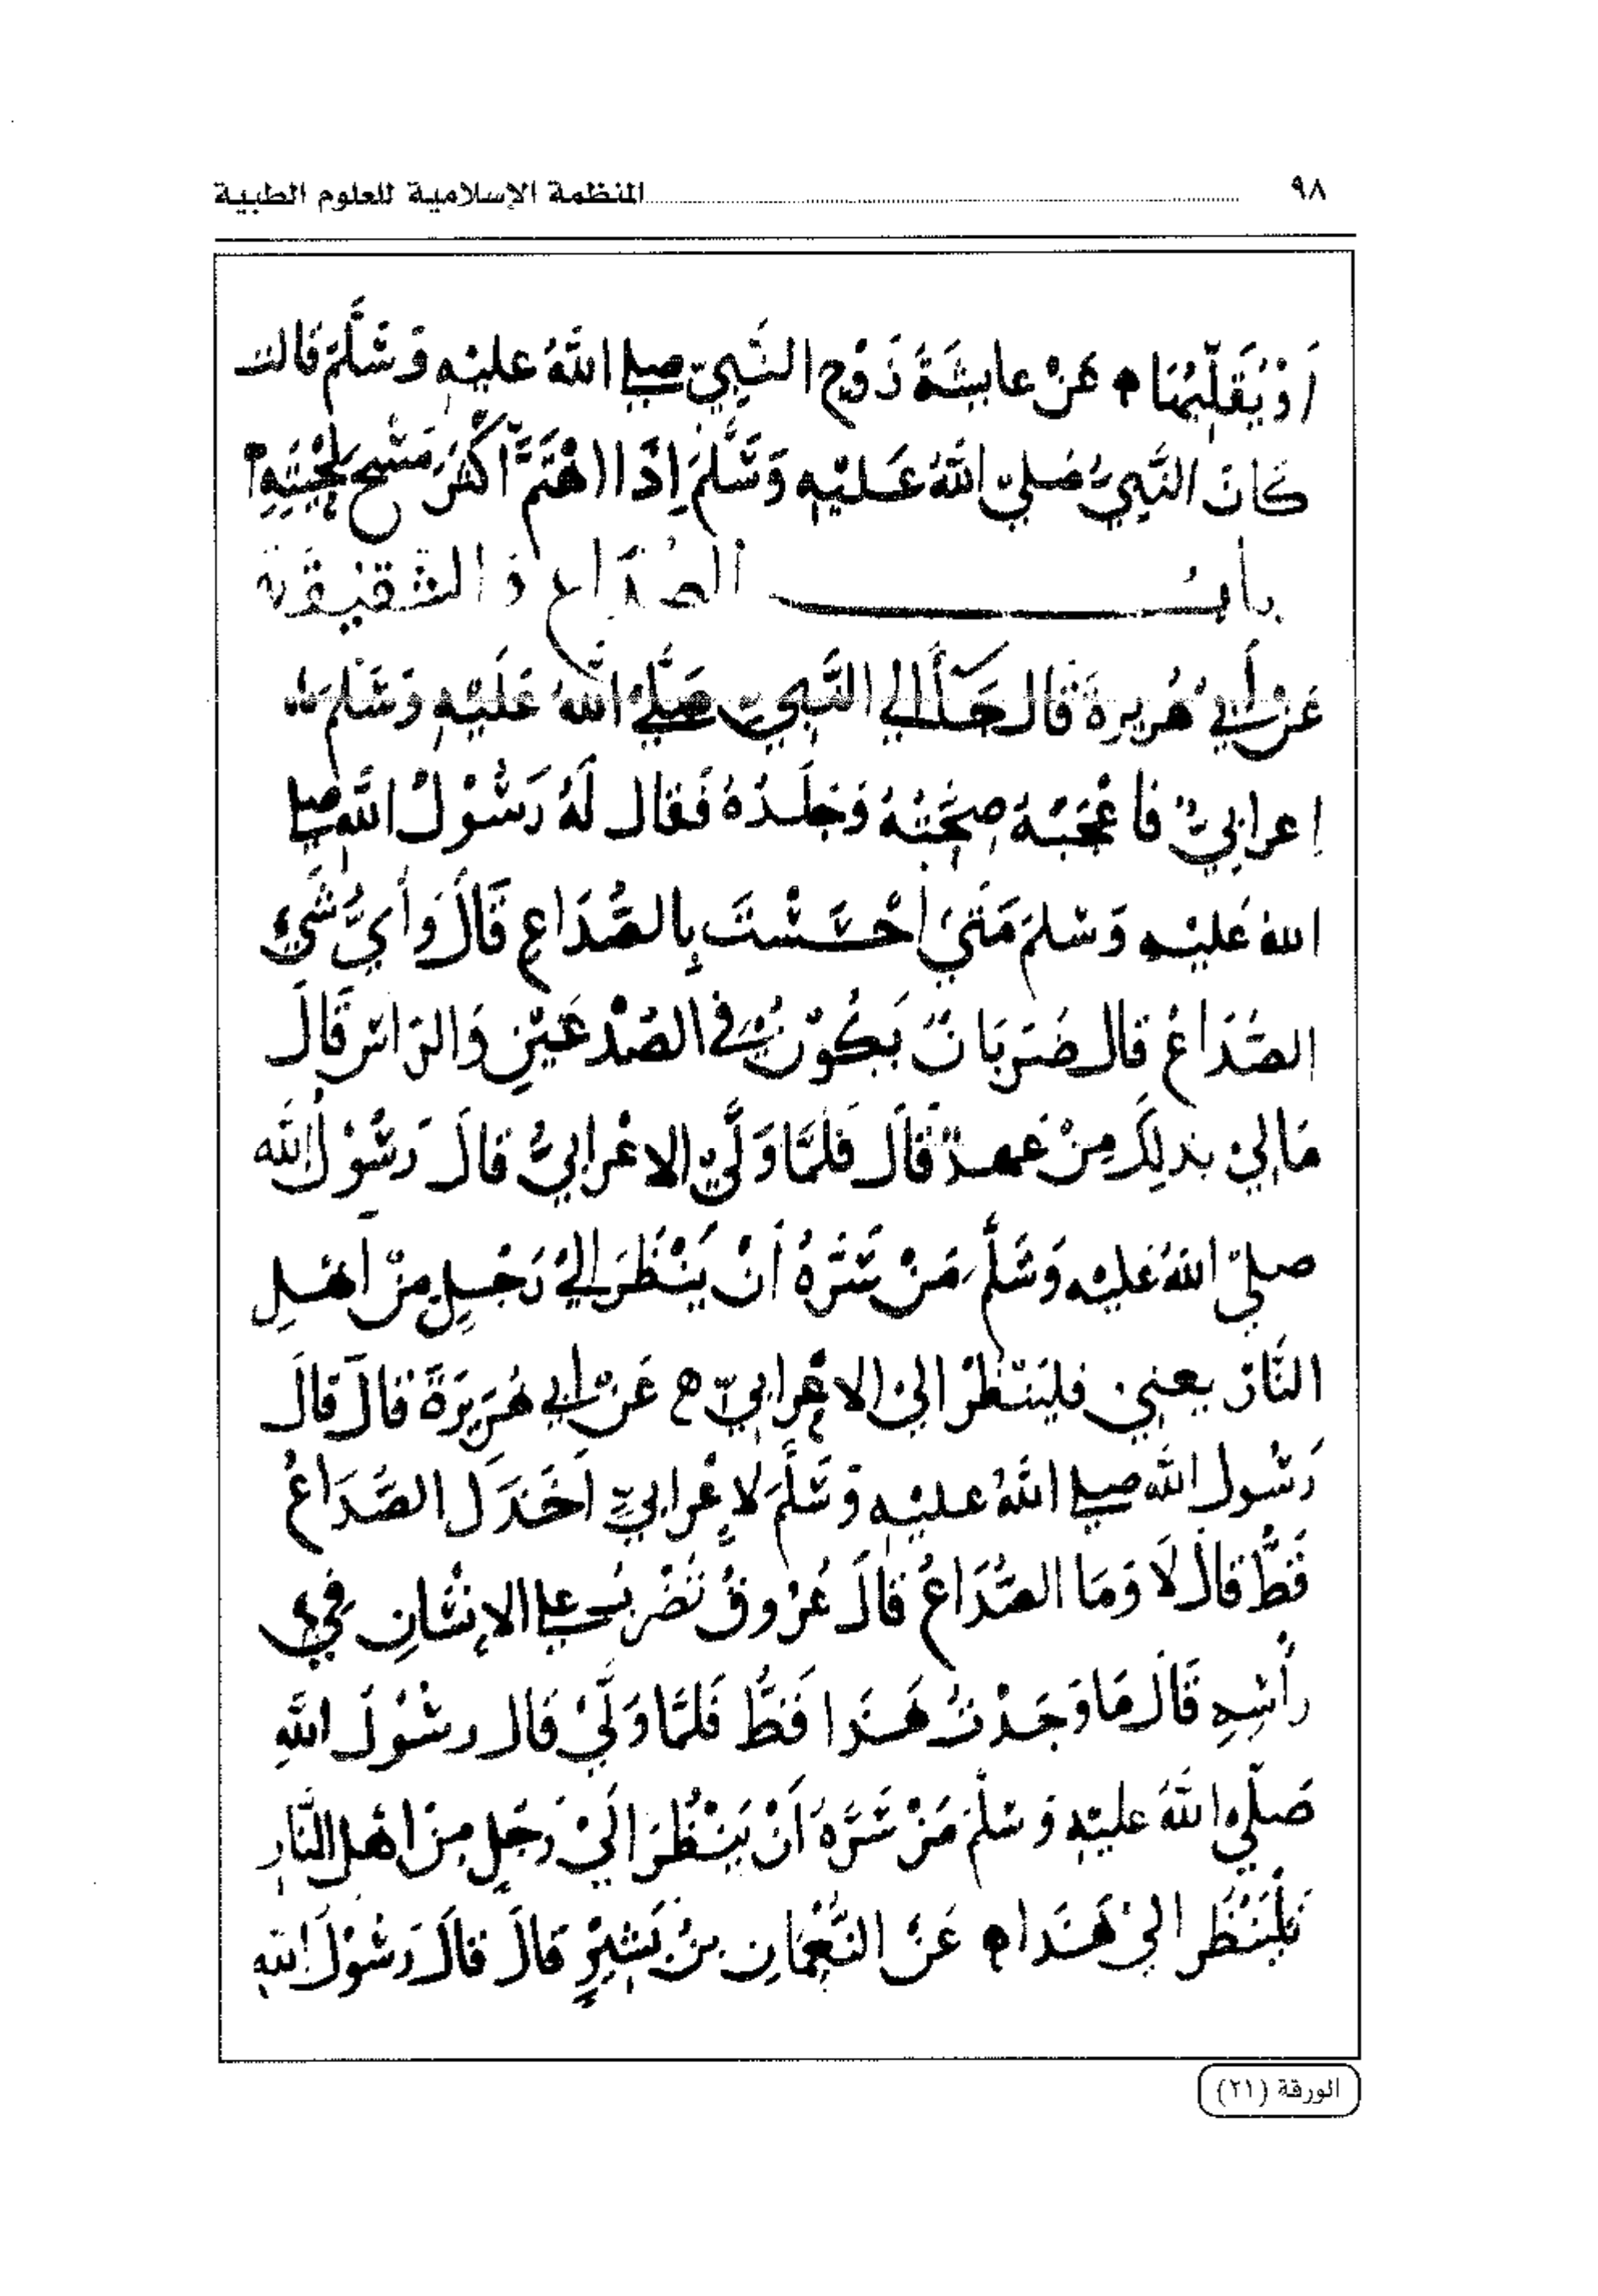 ٩٨ المنظمة الإسلامية للعلوم الطبية
اَوْ يُقَلِّبُهَا ه عَنْ عايشَةَ زَوْج النَّبِيّ صلى اللَّهُ عليْهِ وَسَلَّمَ قالت
كَانَ النَّبِيُّ صَلىّ اللَّهُ عَليْهِ وَسَلَّمَ اِذَا اهْتَمَّ اَكْثَرَ مَسْحَ لِحْيَتِهِ
بابُ الصُدَاع وَالشقيقَة
عَنْ أَبي هُريرةَ قَال جَآَ الي النَّبِيّ صَلَّى اللَّهُ عَلَيْهِ وَسَلمَ
اِعرابيٌّ فاَعْجَبَهُ صِحَّتُهُ وَجَلَدُهُ فَقَال لَهُ رَسُوْلُ اللَّه صلى
اللهُ عَليْهِ وَسْلمَ مَتَىَ اَحْسَسْتَ بِالصُّدَاعِ قَالَ وَأَيُّ شَيْءٍ
الصُّدَاعُ قال ضَرَبَانٌ يَكُوْنُ في الصُّدْغَيْنِ وَالرَاسِ قَالَ
مَالِيْ بذلِكَ مِنْ عَهدٍ قَالَ فَلَمَّا وَلَّىْ الاعْرابيُّ قَالَ رَسُوْلُ اللَّه
صلىّ اللَّهُ عَليْه وَسَلَّمَ مَنْ سَرَّهُ اَنْ يَنْظُرَ اليْ رَجُلٍ مِنْ اَهْلِ
النَّار يعني فليَنْظُرْ الىْ الاعْرابيّ ه عَنْ ابي هُرَيرَةَ قالَ قالَ
رَسُول اللَّه صلى اللَّهُ عليْهِ وَسَلَّمَ لاِعْرابيٍّ اَخَذَكَ الصُّدَاعُ
قَطُّ قالَ لَا وَمَا الصُّدَاعُ قالَ عُرُوقٌ تَضْربُ على الاِنْسَانِ في
رأْسِهِ قَالَ مَا وَجَدْتُ هَذَا قَطُّ فَلمَّا وَلَّىْ قَال رسُوْلَ اللَّهِ
صَلَّى اللَّهُ عليْهِ وَسْلَّمَ مَنْ سَرَّهُ اَنْ يَنْظُرَ الَىْ رَجُلٍ مِنْ اهْلِ النَّارِ
فَلْيَنْظُر الىْ هَذَا ه عَنْ النُّعْمَانِ بنْ بَشِيْرٍ قالَ قالَ رَسُوْلَ اللَّهِ
الورقة (٢١)